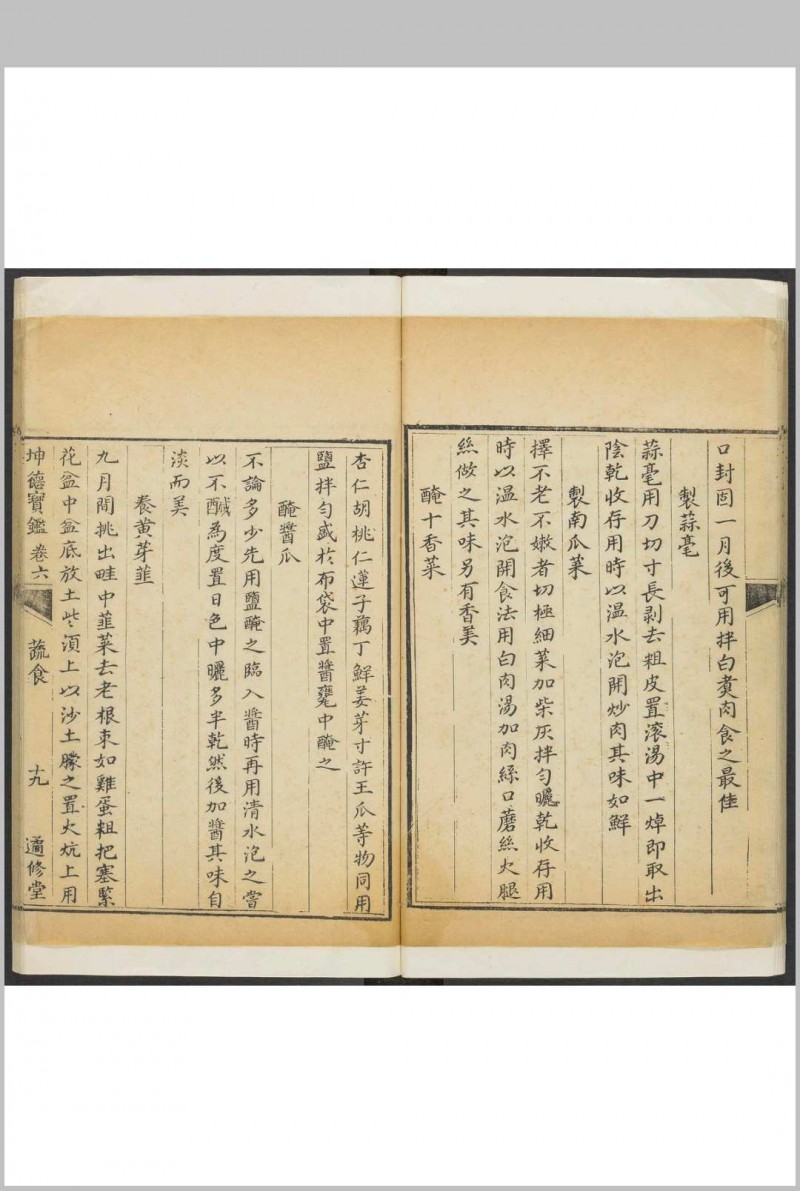 口封固一月後可用拌白煮肉食之最佳
製蒜毫
蒜毫用刀切寸長剥去粗皮置滚湯中一焯即取出
陰乾收存用時以温水泡開炒肉其味如鮮
製南瓜菜
擇不老不嫩者切極細菜加柴灰拌匀曬乾收存用
時以温水泡開食法用白肉湯加肉絲口蘑絲火腿
絲做之其味另有香美
醃十香菜
杏仁胡桃仁蓮子藕丁鮮姜芽寸許王瓜等物同用
鹽拌匀盛於布袋中置醬甕中醃之
醃醬瓜
不論多少先用鹽醃之臨入醬時再用清水泡之嘗
以不醎為度置日色中曬多半乾然後加醬其味自
淡而美
養黄芽韮
九月間挑出畦中韮菜去老根束如雞蛋粗把塞緊
花盆中盆底放土些湏上以沙土朦之置火炕上用
坤德寶鑑 卷六 蔬食 十九 適修堂